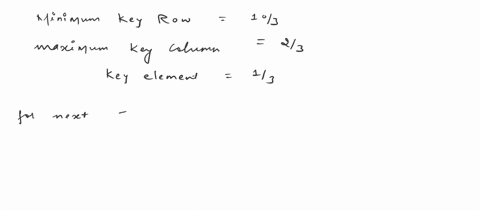 Minimum Key Row = 10/3
maximum Key Column = 2/3
Key element = 1/3
for next -